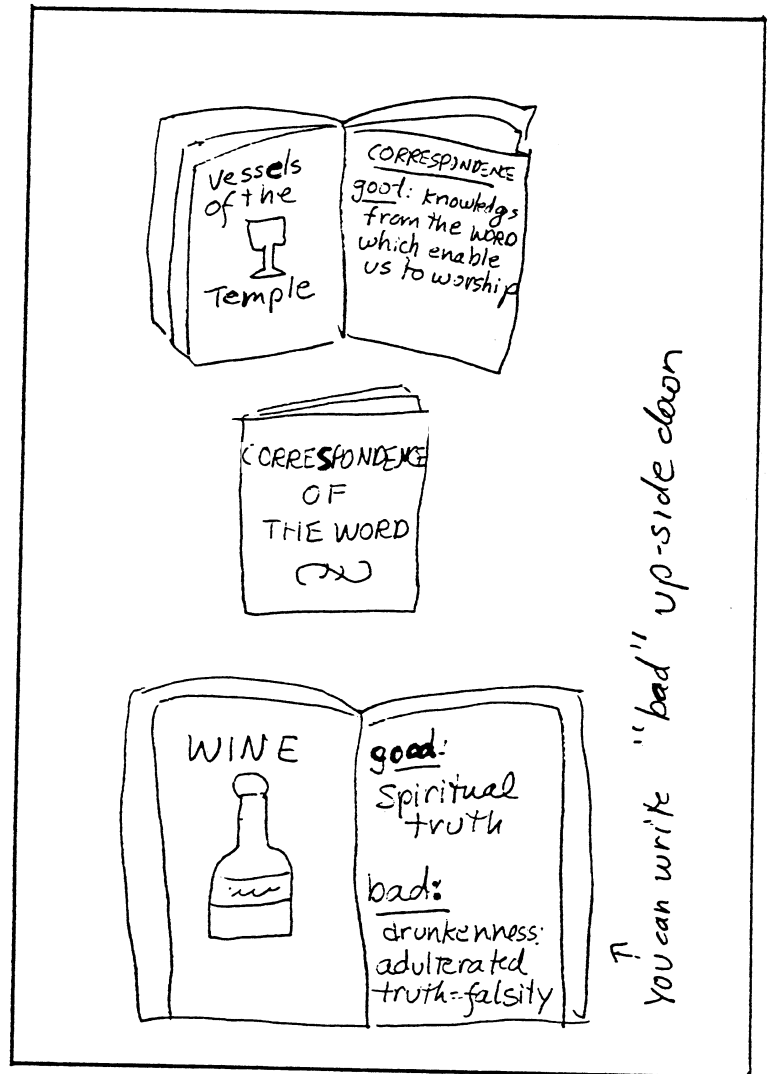 Vessels
of the
Temple
CORRESPONDENCE
good: knowledgs
from the WORD
which enable
us to worship
CORRESPONDENCE
OF
THE WORD
WINE
good:
Spiritual
truth
bad:
drunkenness:
adulterated
truth=falsity
you can write "bad" up-side down